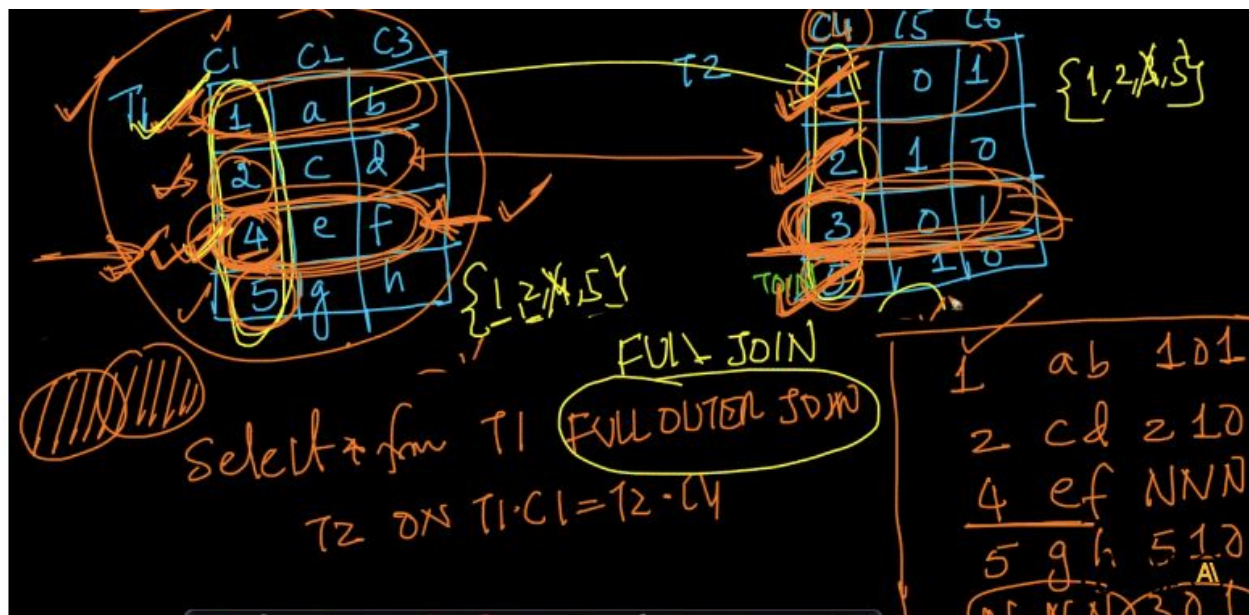 C1 C2 C3
T1
1 a b
2 c d
4 e f
5 g h
{1,2,4,5}
T2
C4 C5 C6
1 0 1
2 1 0
3 0 1
5 1 0
{1,2,
,5}
TOIN
FULL JOIN
Select * from T1 FULL OUTER JOIN
T2 ON T1.C1=T2.C4
1 ab 101
2 cd 210
4 ef NNN
5 gh 510
AI